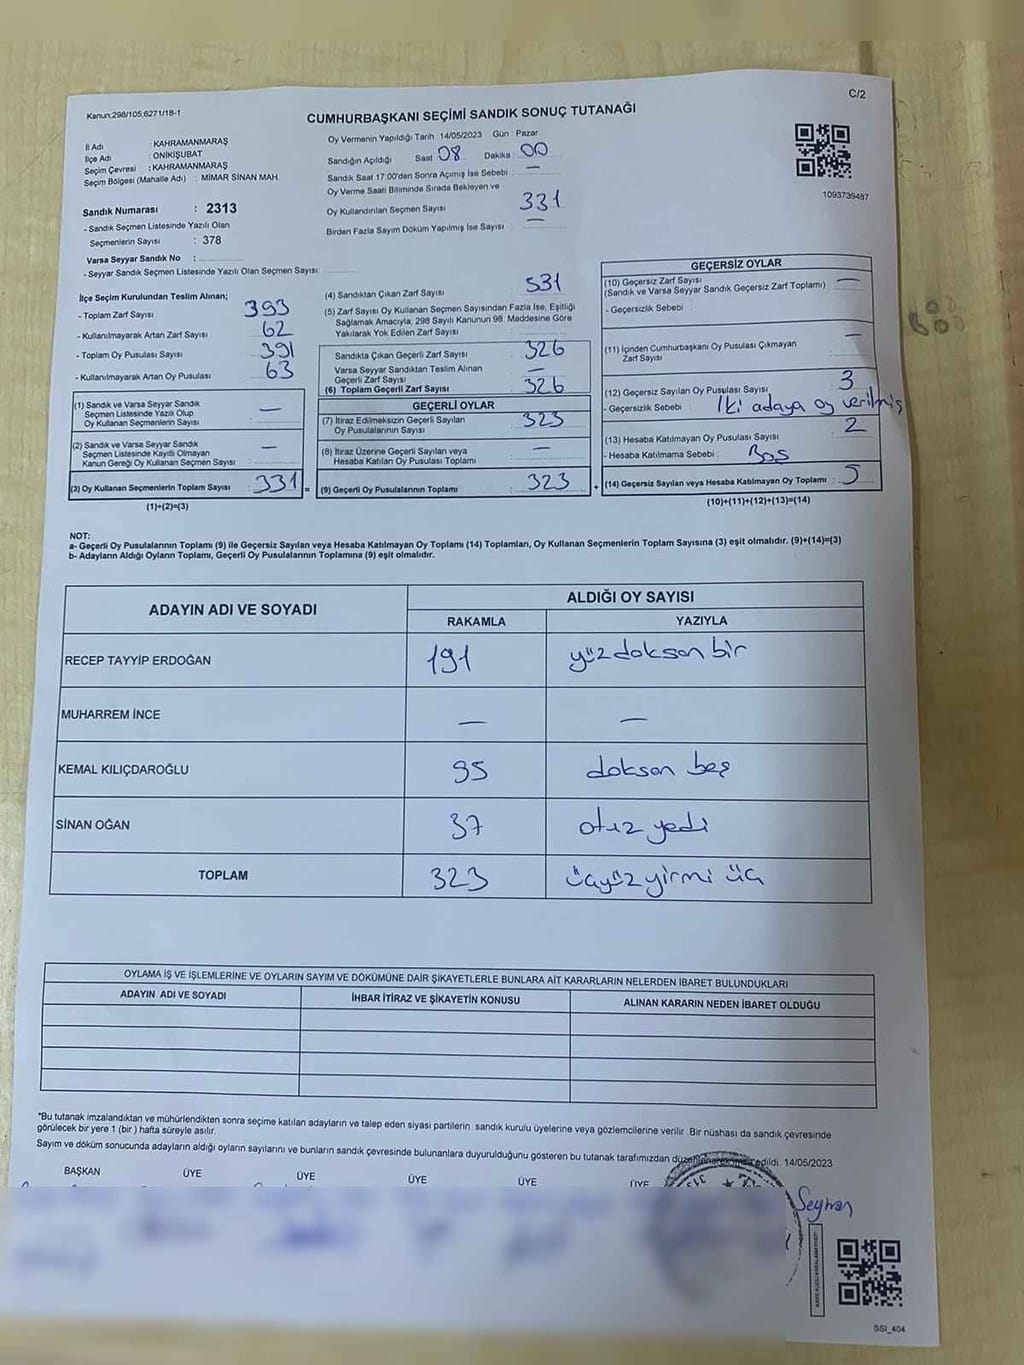 Kanun;298/105;6271/18-1
C/2
CUMHURBAŞKANI SEÇİMİ SANDIK SONUÇ TUTANAĞI
İl Adı KAHRAMANMARAŞ
İlçe Adı : ONİKİŞUBAT
Seçim Çevresi : KAHRAMANMARAŞ
Seçim Bölgesi (Mahalle Adı) : MİMAR SİNAN MAH.
Sandık Numarası : 2313
- Sandık Seçmen Listesinde Yazılı Olan
Seçmenlerin Sayısı : 378
Varsa Seyyar Sandık No :
- Seyyar Sandık Seçmen Listesinde Yazılı Olan Seçmen Sayısı
Oy Vermenin Yapıldığı Tarih : 14/05/2023 Gün : Pazar
Sandığın Açıldığı Saat 08 Dakika 00
Sandık Saat 17:00'den Sonra Açımış İse Sebebi : —
Oy Verme Saati Bitiminde Sırada Bekleyen ve
Oy Kullandırılan Seçmen Sayısı 331
Birden Fazla Sayım Döküm Yapılmış İse Sayısı : —
1093739487
İlçe Seçim Kurulundan Teslim Alınan;
- Toplam Zarf Sayısı 393
- Kullanılmayarak Artan Zarf Sayısı 62
- Toplam Oy Pusulası Sayısı 391
- Kullanılmayarak Artan Oy Pusulası 63
(1) Sandık ve Varsa Seyyar Sandık
Seçmen Listesinde Yazılı Olup
Oy Kullanan Seçmenlerin Sayısı —
(2) Sandık ve Varsa Seyyar Sandık
Seçmen Listesinde Kayıtlı Olmayan
Kanun Gereği Oy Kullanan Seçmen Sayısı —
(3) Oy Kullanan Seçmenlerin Toplam Sayısı 331 =
(1)+(2)=(3)
(4) Sandıktan Çıkan Zarf Sayısı 531
(5) Zarf Sayısı Oy Kullanan Seçmen Sayısından Fazla İse, Eşitliği
Sağlamak Amacıyla, 298 Sayılı Kanunun 98. Maddesine Göre
Yakılarak Yok Edilen Zarf Sayısı
Sandıkta Çıkan Geçerli Zarf Sayısı 326
Varsa Seyyar Sandıktan Teslim Alınan
Geçerli Zarf Sayısı —
(6) Toplam Geçerli Zarf Sayısı 326
GEÇERLİ OYLAR
(7) İtiraz Edilmeksizin Geçerli Sayılan
Oy Pusulalarının Sayısı 323
(8) İtiraz Üzerine Geçerli Sayılan veya
Hesaba Katılan Oy Pusulası Toplamı —
(9) Geçerli Oy Pusulalarının Toplamı : 323 +
GEÇERSİZ OYLAR
(10) Geçersiz Zarf Sayısı
(Sandık ve Varsa Seyyar Sandık Geçersiz Zarf Toplamı) —
- Geçersizlik Sebebi :
(11) İçinden Cumhurbaşkanı Oy Pusulası Çıkmayan
Zarf Sayısı —
(12) Geçersiz Sayılan Oy Pusulası Sayısı 3
- Geçersizlik Sebebi : İki adaya oy verilmiş
(13) Hesaba Katılmayan Oy Pusulası Sayısı 2
- Hesaba Katılmama Sebebi : Boş
(14) Geçersiz Sayılan veya Hesaba Katılmayan Oy Toplamı : 5
(10)+(11)+(12)+(13)=(14)
NOT:
a- Geçerli Oy Pusulalarının Toplamı (9) ile Geçersiz Sayılan veya Hesaba Katılmayan Oy Toplamı (14) Toplamları, Oy Kullanan Seçmenlerin Toplam Sayısına (3) eşit olmalıdır. (9)+(14)=(3)
b- Adayların Aldığı Oyların Toplamı, Geçerli Oy Pusulalarının Toplamına (9) eşit olmalıdır.
ADAYIN ADI VE SOYADI ALDIĞI OY SAYISI
RAKAMLA YAZIYLA
RECEP TAYYİP ERDOĞAN 191 yüzdoksan bir
MUHARREM İNCE — —
KEMAL KILIÇDAROĞLU 95 doksan beş
SİNAN OĞAN 37 otuz yedi
TOPLAM 323 üçyüz yirmi üç
OYLAMA İŞ VE İŞLEMLERİNE VE OYLARIN SAYIM VE DÖKÜMÜNE DAİR ŞİKAYETLERLE BUNLARA AİT KARARLARIN NELERDEN İBARET BULUNDUKLARI
ADAYIN ADI VE SOYADI İHBAR İTİRAZ VE ŞİKAYETİN KONUSU ALINAN KARARIN NEDEN İBARET OLDUĞU
*Bu tutanak imzalandıktan ve mühürlendikten sonra seçime katılan adayların ve talep eden siyasi partilerin sandık kurulu üyelerine veya gözlemcilerine verilir .Bir nüshası da sandık çevresinde
görülecek bir yere 1 (bir ) hafta süreyle asılır.
Sayım ve döküm sonucunda adayların aldığı oyların sayılarını ve bunların sandık çevresinde bulunanlara duyurulduğunu gösteren bu tutanak tarafımızdan edildi. 14/05/2023
BAŞKAN ÜYE ÜYE ÜYE ÜYE ÜYE
Seyhan
SSI_404